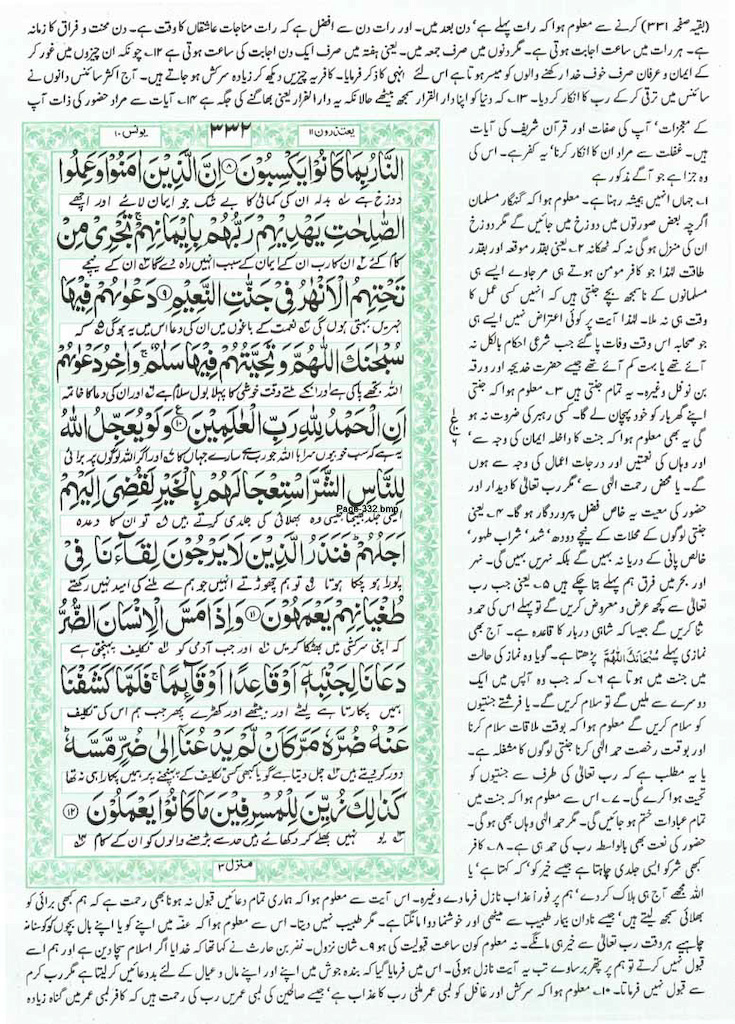 (بقیہ صفحہ ۳۳۱) کرنے سے معلوم ہوا کہ رات پہلے ہے' دن بعد میں۔ اور رات دن سے افضل ہے کہ رات مناجات عاشقاں کا وقت ہے۔ دن محنت و فراق کا زمانہ
ہے۔ ہر رات میں ساعت اجابت ہوتی ہے۔ مگر دنوں میں صرف جمعہ میں۔ یعنی ہفتہ میں صرف ایک دن اجابت کی ساعت ہوتی ہے ۱۲۔ چونکہ ان چیزوں میں غور کر
کے ایمان و عرفان صرف خوف خدا رکھنے والوں کو میسر ہوتا ہے اس لئے انہی کا ذکر فرمایا۔ کافر یہ چیزیں دیکھ کر زیادہ سرکش ہو جاتے ہیں۔ آج اکثر سائنس دانوں نے
سائنس میں ترقی کر کے رب کا انکار کر دیا۔ ۱۳۔ کہ دنیا کو اپنا دار القرار سمجھ بیٹھے حالانکہ یہ دار الفرار یعنی بھاگنے کی جگہ ہے ۱۴۔ آیات سے مراد حضور کی ذات آپ
کے معجزات' آپ کی صفات اور قرآن شریف کی آیات
ہیں۔ غفلت سے مراد ان کا انکار کرنا' یہ کفر ہے۔ اس کی
وہ جزا ہے جو آگے مذکور ہے
۱۔ جہاں انہیں ہمیشہ رہنا ہے۔ معلوم ہوا کہ گنہگار مسلمان
اگرچہ بعض صورتوں میں دوزخ میں جائیں گے مگر دوزخ
ان کی منزل ہو گی نہ کہ ٹھکانہ ۲۔ یعنی بقدر موقعہ اور بقدر
طاقت لہذا جو کافر مومن ہوتے ہی مر جاوے ایسے ہی
مسلمانوں کے ناسمجھ بچے جنتی ہیں کہ انہیں کسی عمل کا
وقت ہی نہ ملا۔ لہذا آیت پر کوئی اعتراض نہیں ایسے ہی
جو صحابہ اس وقت وفات پا گئے جب شرعی احکام بالکل نہ
آئے تھے یا بہت کم آئے تھے جیسے حضرت خدیجہ اور ورقہ
بن نوفل وغیرہ۔ یہ تمام جنتی ہیں ۳۔ معلوم ہوا کہ جنتی
اپنے گھر بار کو خود پہچان لے گا۔ کسی رہبر کی ضرورت نہ ہو
گی یہ بھی معلوم ہوا کہ جنت کا داخلہ ایمان کی وجہ سے'
اور وہاں کی نعمتیں اور درجات اعمال کی وجہ سے ہوں
گے۔ یا محض رحمت الہی سے' مگر رب تعالیٰ کا دیدار اور
حضور کی معیت یہ خاص فضل پروردگار ہو گا۔ ۴۔ یعنی
جنتی لوگوں کے محلات کے نیچے دودھ' شہد' شراب طہور'
خالص پانی کے دریا نہ بہیں گے بلکہ نہریں بہیں گی۔ نہر
اور بحر میں فرق ہم پہلے بتا چکے ہیں ۵۔ یعنی جب رب
تعالیٰ سے کچھ عرض و معروض کریں گے تو پہلے اس کی حمد و
ثنا کریں گے جیسا کہ شاہی دربار کا قاعدہ ہے۔ آج بھی
نمازی پہلے سُبْحَانَكَ اللّٰهُمَّ پڑھتا ہے۔ گویا وہ نماز کی حالت
میں جنت میں ہوتا ہے ۶۔ کہ جب وہ آپس میں ایک
دوسرے سے ملیں گے تو سلام کریں گے۔ یا فرشتے جنتیوں
کو سلام کریں گے معلوم ہوا کہ بوقت ملاقات سلام کرنا
اور بوقت رخصت حمد الہی کرنا جنتی لوگوں کا مشغلہ ہے۔
یا یہ مطلب ہے کہ رب تعالیٰ کی طرف سے جنتیوں کو
تحیت ہوا کرے گی۔ ۷۔ اس سے معلوم ہوا کہ جنت میں
تمام عبادات ختم ہو جائیں گی۔ مگر حمد الہی وہاں بھی ہو گی۔
حضور کی نعت بھی بالواسطہ رب کی حمد ہی ہے۔ ۸۔ کافر
کبھی شر کو ایسی جلدی چاہتا ہے جیسے خیر کو' کہ کہتا ہے' یا
یعتذرون ۱۱
۳۳۲
یونس ۱۰
النَّارُ بِمَا كَانُوْا يَكْسِبُوْنَ ۸ اِنَّ الَّذِيْنَ اٰمَنُوْا وَعَمِلُوا
دوزخ ہے بدلہ ان کی کمائی کا بے شک جو ایمان لائے اور اچھے
الصّٰلِحٰتِ يَهْدِيْهِمْ رَبُّهُمْ بِاِيْمَانِهِمْ تَجْرِيْ مِنْ
کام کئے ان کا رب ان کے ایمان کے سبب انہیں راہ دے گا ان کے نیچے
تَحْتِهِمُ الْاَنْهٰرُ فِيْ جَنّٰتِ النَّعِيْمِ ۹ دَعْوٰىهُمْ فِيْهَا
نہریں بہتی ہوں گی نعمت کے باغوں میں ان کی دعا اس میں یہ ہو گی کہ
سُبْحٰنَكَ اللّٰهُمَّ وَتَحِيَّتُهُمْ فِيْهَا سَلٰمٌ وَاٰخِرُ دَعْوٰىهُمْ
اللہ تجھے پاکی ہے اور انکے ملتے وقت خوشی کا پہلا بول سلام ہے اور ان کی دعا کا خاتمہ
اَنِ الْحَمْدُ لِلّٰهِ رَبِّ الْعٰلَمِيْنَ ۱۰ وَلَوْ يُعَجِّلُ اللّٰهُ
یہ ہے کہ سب خوبیوں سراہا اللہ جو رب ہے سارے جہان کا اور اگر اللہ لوگوں پر برائی
لِلنَّاسِ الشَّرَّ اسْتِعْجَالَهُمْ بِالْخَيْرِ لَقُضِيَ اِلَيْهِمْ
ایسی جلد بھیجتا جیسی وہ بھلائی کی جلدی کرتے ہیں تو ان کا وعدہ
Page-332.bmp
اَجَلُهُمْ فَنَذَرُ الَّذِيْنَ لَا يَرْجُوْنَ لِقَآءَنَا فِيْ
پورا ہو چکا ہوتا تو ہم چھوڑتے انہیں جو ہم سے ملنے کی امید نہیں رکھتے
طُغْيَانِهِمْ يَعْمَهُوْنَ ۱۱ وَاِذَا مَسَّ الْاِنْسَانَ الضُّرُّ
کہ اپنی سرکشی میں بھٹکا کریں اور جب آدمی کو تکلیف پہنچتی ہے
دَعَانَا لِجَنْۢبِهٖٓ اَوْ قَاعِدًا اَوْ قَآئِمًا فَلَمَّا كَشَفْنَا
ہمیں پکارتا ہے لیٹے اور بیٹھے اور کھڑے پھر جب ہم اس کی تکلیف
عَنْهُ ضُرَّهٗ مَرَّ كَاَنْ لَّمْ يَدْعُنَآ اِلٰى ضُرٍّ مَّسَّهٗ
دور کر دیتے ہیں چل دیتا ہے گویا کبھی کسی تکلیف کے پہنچنے پر ہمیں پکارا ہی نہ تھا
كَذٰلِكَ زُيِّنَ لِلْمُسْرِفِيْنَ مَا كَانُوْا يَعْمَلُوْنَ ۱۲
یوں نہیں بھلے کر دکھائے ہیں حد سے بڑھنے والوں کو ان کے کام
منزل ۳
اللہ مجھے آج ہی ہلاک کر دے' ہم پر فوراً عذاب نازل فرما دے وغیرہ۔ اس آیت سے معلوم ہوا کہ ہماری تمام دعائیں قبول نہ ہونا بھی رحمت ہے کہ ہم کبھی برائی کو
بھلائی سمجھ لیتے ہیں' جیسے نادان بیمار طبیب سے میٹھی اور خوشنما دوا مانگتا ہے۔ مگر طبیب نہیں دیتا۔ اس سے معلوم ہوا کہ غصہ میں اپنے کو یا اپنے بال بچوں کو کوسنا نہ
چاہیے ہر وقت رب تعالیٰ سے خیر ہی مانگے۔ نہ معلوم کون ساعت قبولیت کی ہو ۹۔ شان نزول۔ نضر بن حارث نے کہا تھا کہ خدایا اگر اسلام سچا دین ہے اور ہم اسے
قبول نہیں کرتے تو ہم پر پتھر برسا دے تب یہ آیت نازل ہوئی۔ اس میں فرمایا گیا کہ بندہ جوش میں اپنے اور اپنے مال و عیال کے لئے بددعائیں کر لیتا ہے مگر رب کرم
سے قبول نہیں فرماتا۔ ۱۰۔ معلوم ہوا کہ سرکش اور غافل کو لمبی عمر ملنی رب کا عذاب ہے' جیسے صالحین کی لمبی عمریں رب کی رحمت ہیں کہ کافر لمبی عمر میں گناہ زیادہ